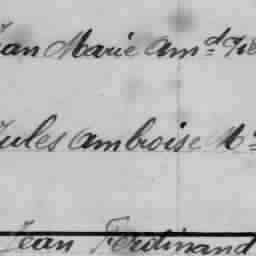 Jean Marie Amd
Jules Ambroise
Jean Ferdinand